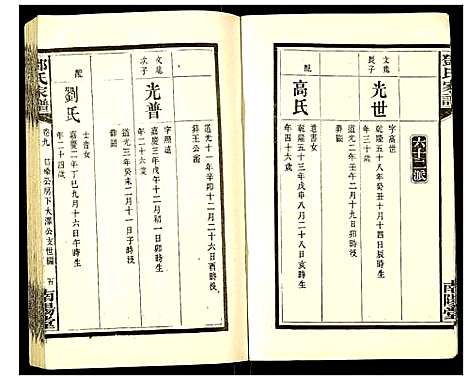 鄧氏家譜
南陽堂
六十三派
文蔚
長子
光世
字高世
乾隆五十八年癸丑十月十四日辰時生
年三十歲
道光二年壬午十二月十九日卯時歿
葬
配
高氏
道書女
乾隆五十三年戊申八月二十八日亥時生
年四十六歲
道光十一年辛卯十二月二十六日酉時歿
葬王公瀧
文蔚
次子
光普
字照遠
嘉慶三年戊午十二月初一日卯時生
年二十六歲
道光三年癸未二月十一日子時歿
葬
配
劉氏
士音女
嘉慶二年丁巳九月十六日午時生
年二十四歲
鄧氏家譜
卷九
公房下大澤公支世系
南陽堂